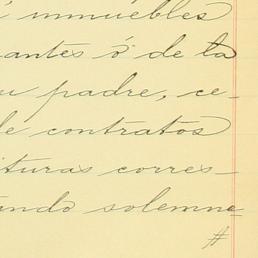 é inmuebles
antes ó de la
u padre, ce-
de contratos
ituras corres-
ando solemne
#